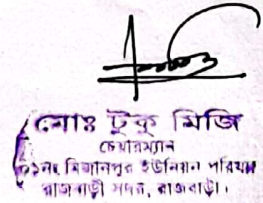 মোঃ টুকু মিজি
চেয়ারম্যান
১নং মিজানপুর ইউনিয়ন পরিষদ
রাজবাড়ী সদর, রাজবাড়ী।